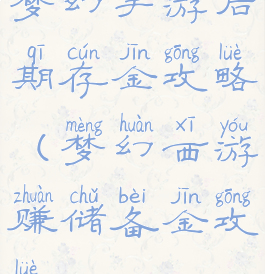 梦幻手游后
qī cún jīn gōng lüè
期存金攻略
mèng huàn xī yóu
（梦幻西游
zhuàn chǔ bèi jīn gōng
赚储备金攻
lüè